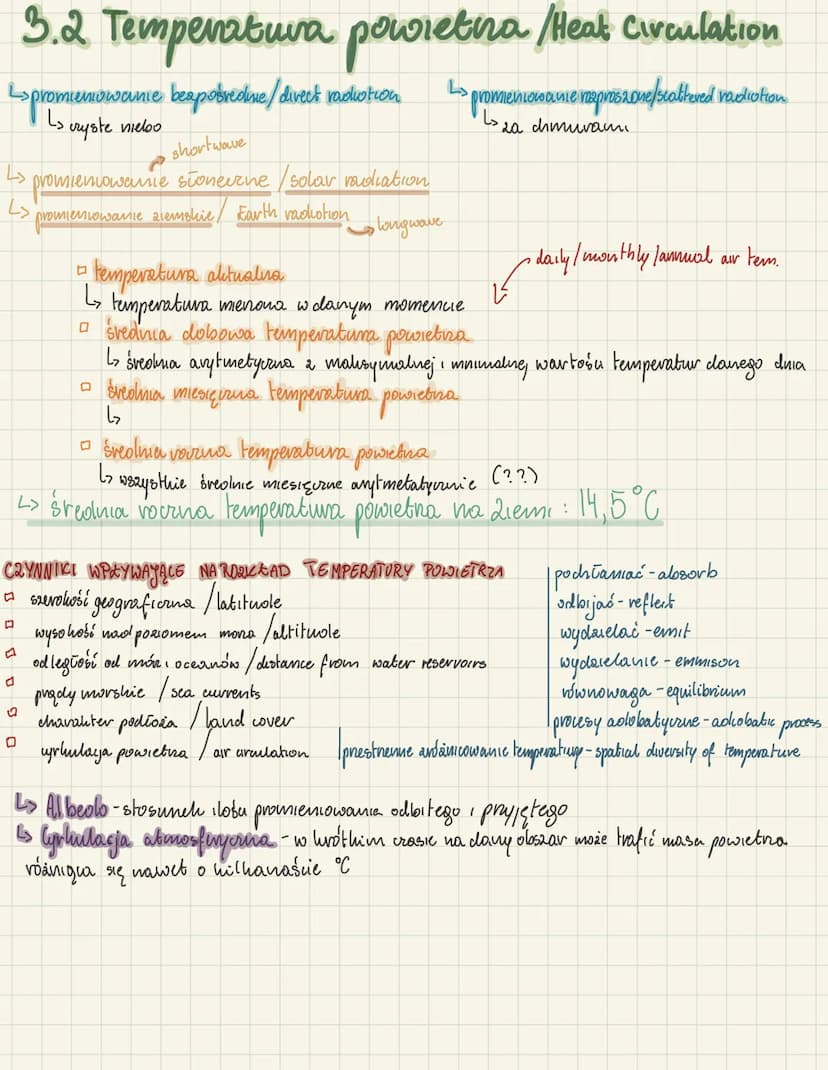 3.2 Temperatura powietrza / Heat Circulation
↳ promieniowanie bezpośrednie / direct radiation
↳ czyste niebo
↳ promieniowanie rozproszone / scattered radiation
↳ za chmurami
shortwave
↳ promieniowanie słoneczne / solar radiation
↳ promieniowanie ziemskie / Earth radiation
longwave
daily / monthly / annual air tem.
□ temperatura aktualna
↳ temperatura mierzona w danym momencie
□ średnia dobowa temperatura powietrza
↳ średnia arytmetyczna z maksymalnej i minimalnej wartości temperatur danego dnia
□ średnia miesięczna temperatura powietrza
↳
□ średnia roczna temperatura powietrza
↳ wszystkie średnie miesięczne arytmetatycznie (??)
↳ średnia roczna temperatura powietrza na Ziemi : 14,5°C
CZYNNIKI WPŁYWAJĄCE NA ROZKŁAD TEMPERATURY POWIETRZA
□ szerokość geograficzna / latitude
□ wysokość nad poziomem morza / altitude
□ odległość od mórz i oceanów / distance from water reservoirs
□ prądy morskie / sea currents
□ charakter podłoża / land cover
□ cyrkulacja powietrza / air circulation
podchłaniać - absorb
odbijać - reflect
wydzielać - emit
wydzielanie - emmison
równowaga - equilibrium
procesy adiabatyczne - adiabatic process
przestrzenne zróżnicowanie temperatury - spatial diversity of temperature
↳ Albedo - stosunek ilości promieniowania odbitego i przyjętego
↳ Cyrkulacja atmosferyczna - w krótkim czasie na dany obszar może trafić masa powietrza
różniąca się nawet o kilkanaście °C